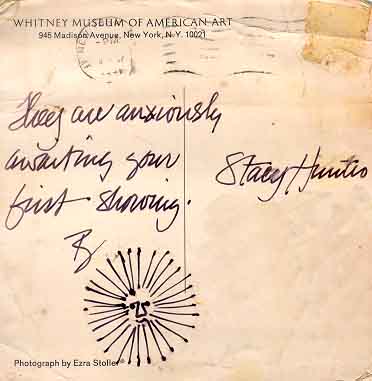 WHITNEY MUSEUM OF AMERICAN ART
945 Madison Avenue, New York, N.Y. 10021
They are anxiously
awaiting your
first showing.
Stacy Hunter
Photograph by Ezra Stoller©